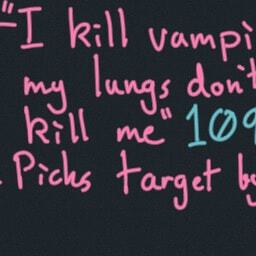 "I kill vampi
my lungs don't
kill me" 109
Picks target by